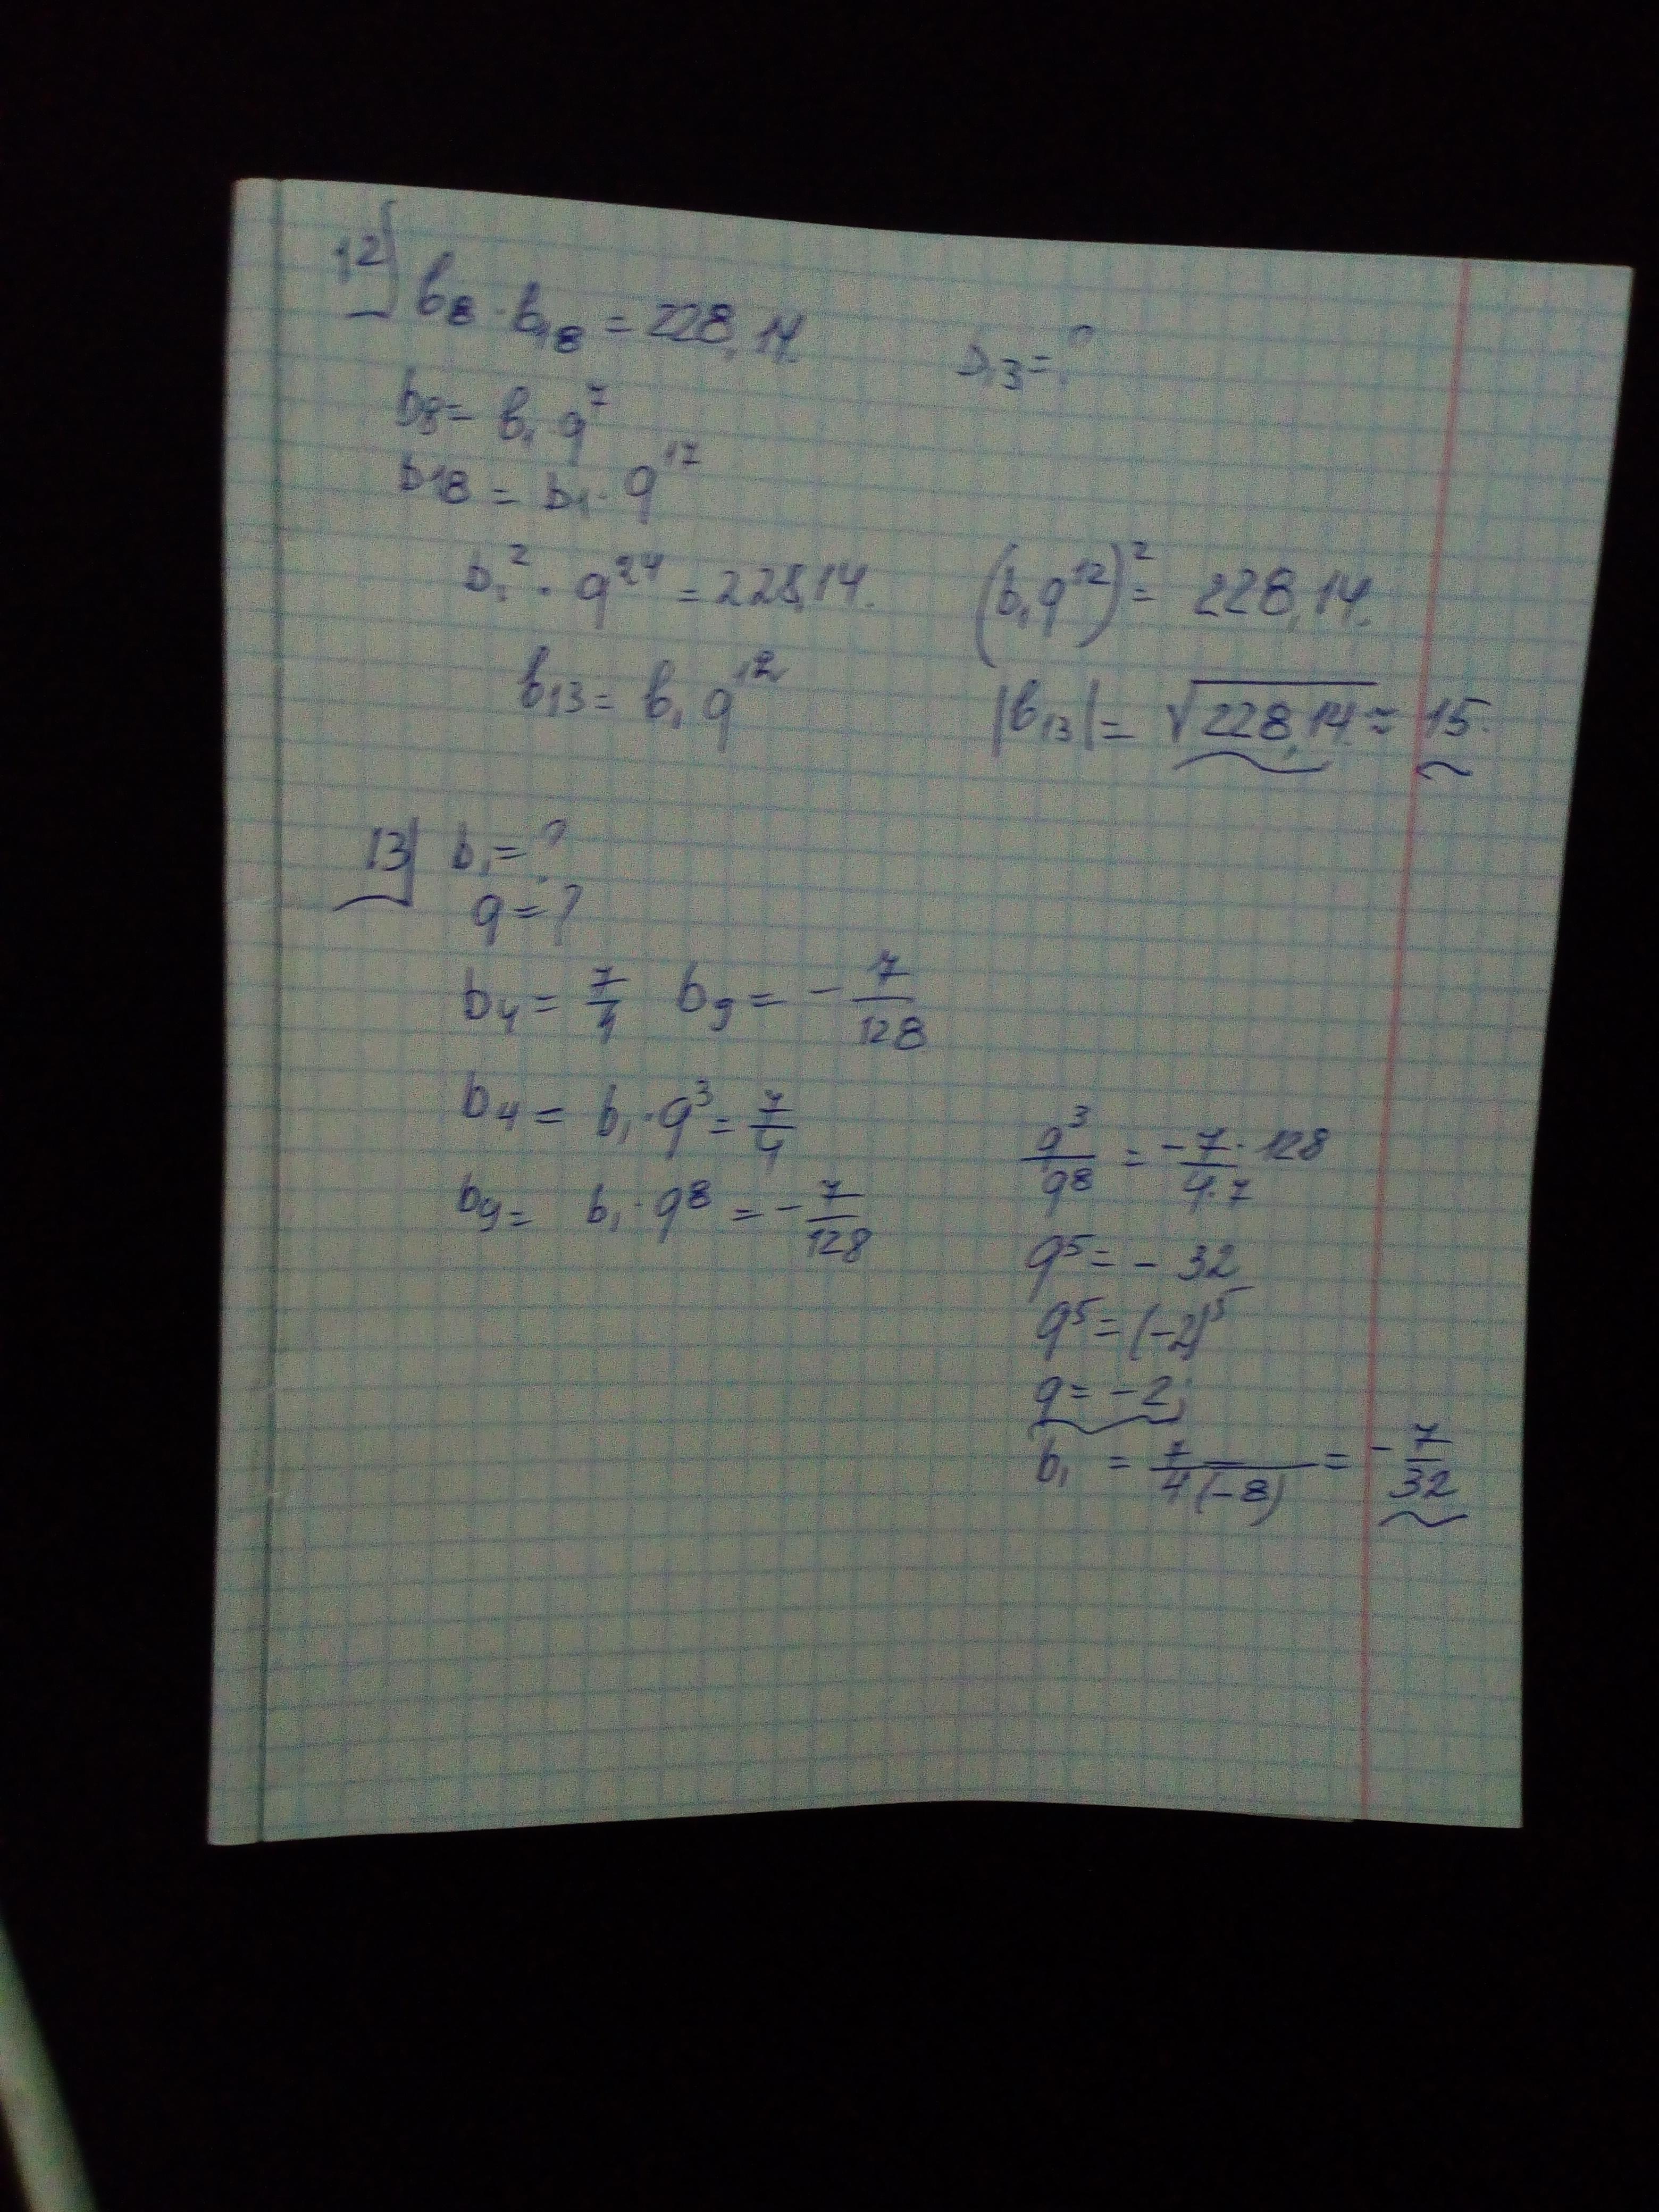 12) b₈ · b₁₈ = 228,14 b₁₃ = ?
b₈ = b₁ · q⁷
b₁₈ = b₁ · q¹⁷
b₁² · q²⁴ = 228,14. (b₁q¹²)² = 228,14.
b₁₃ = b₁ q¹² |b₁₃| = √228,14 ≈ 15.
13) b₁ = ?
q = ?
b₄ = 7/4 b₉ = - 7/128
b₄ = b₁ · q³ = 7/4
b₉ = b₁ · q⁸ = - 7/128
q³/q⁸ = -7 · 128/4 · 7
q⁵ = - 32
q⁵ = (-2)⁵
q = -2;
b₁ = 7/4(-8) = - 7/32